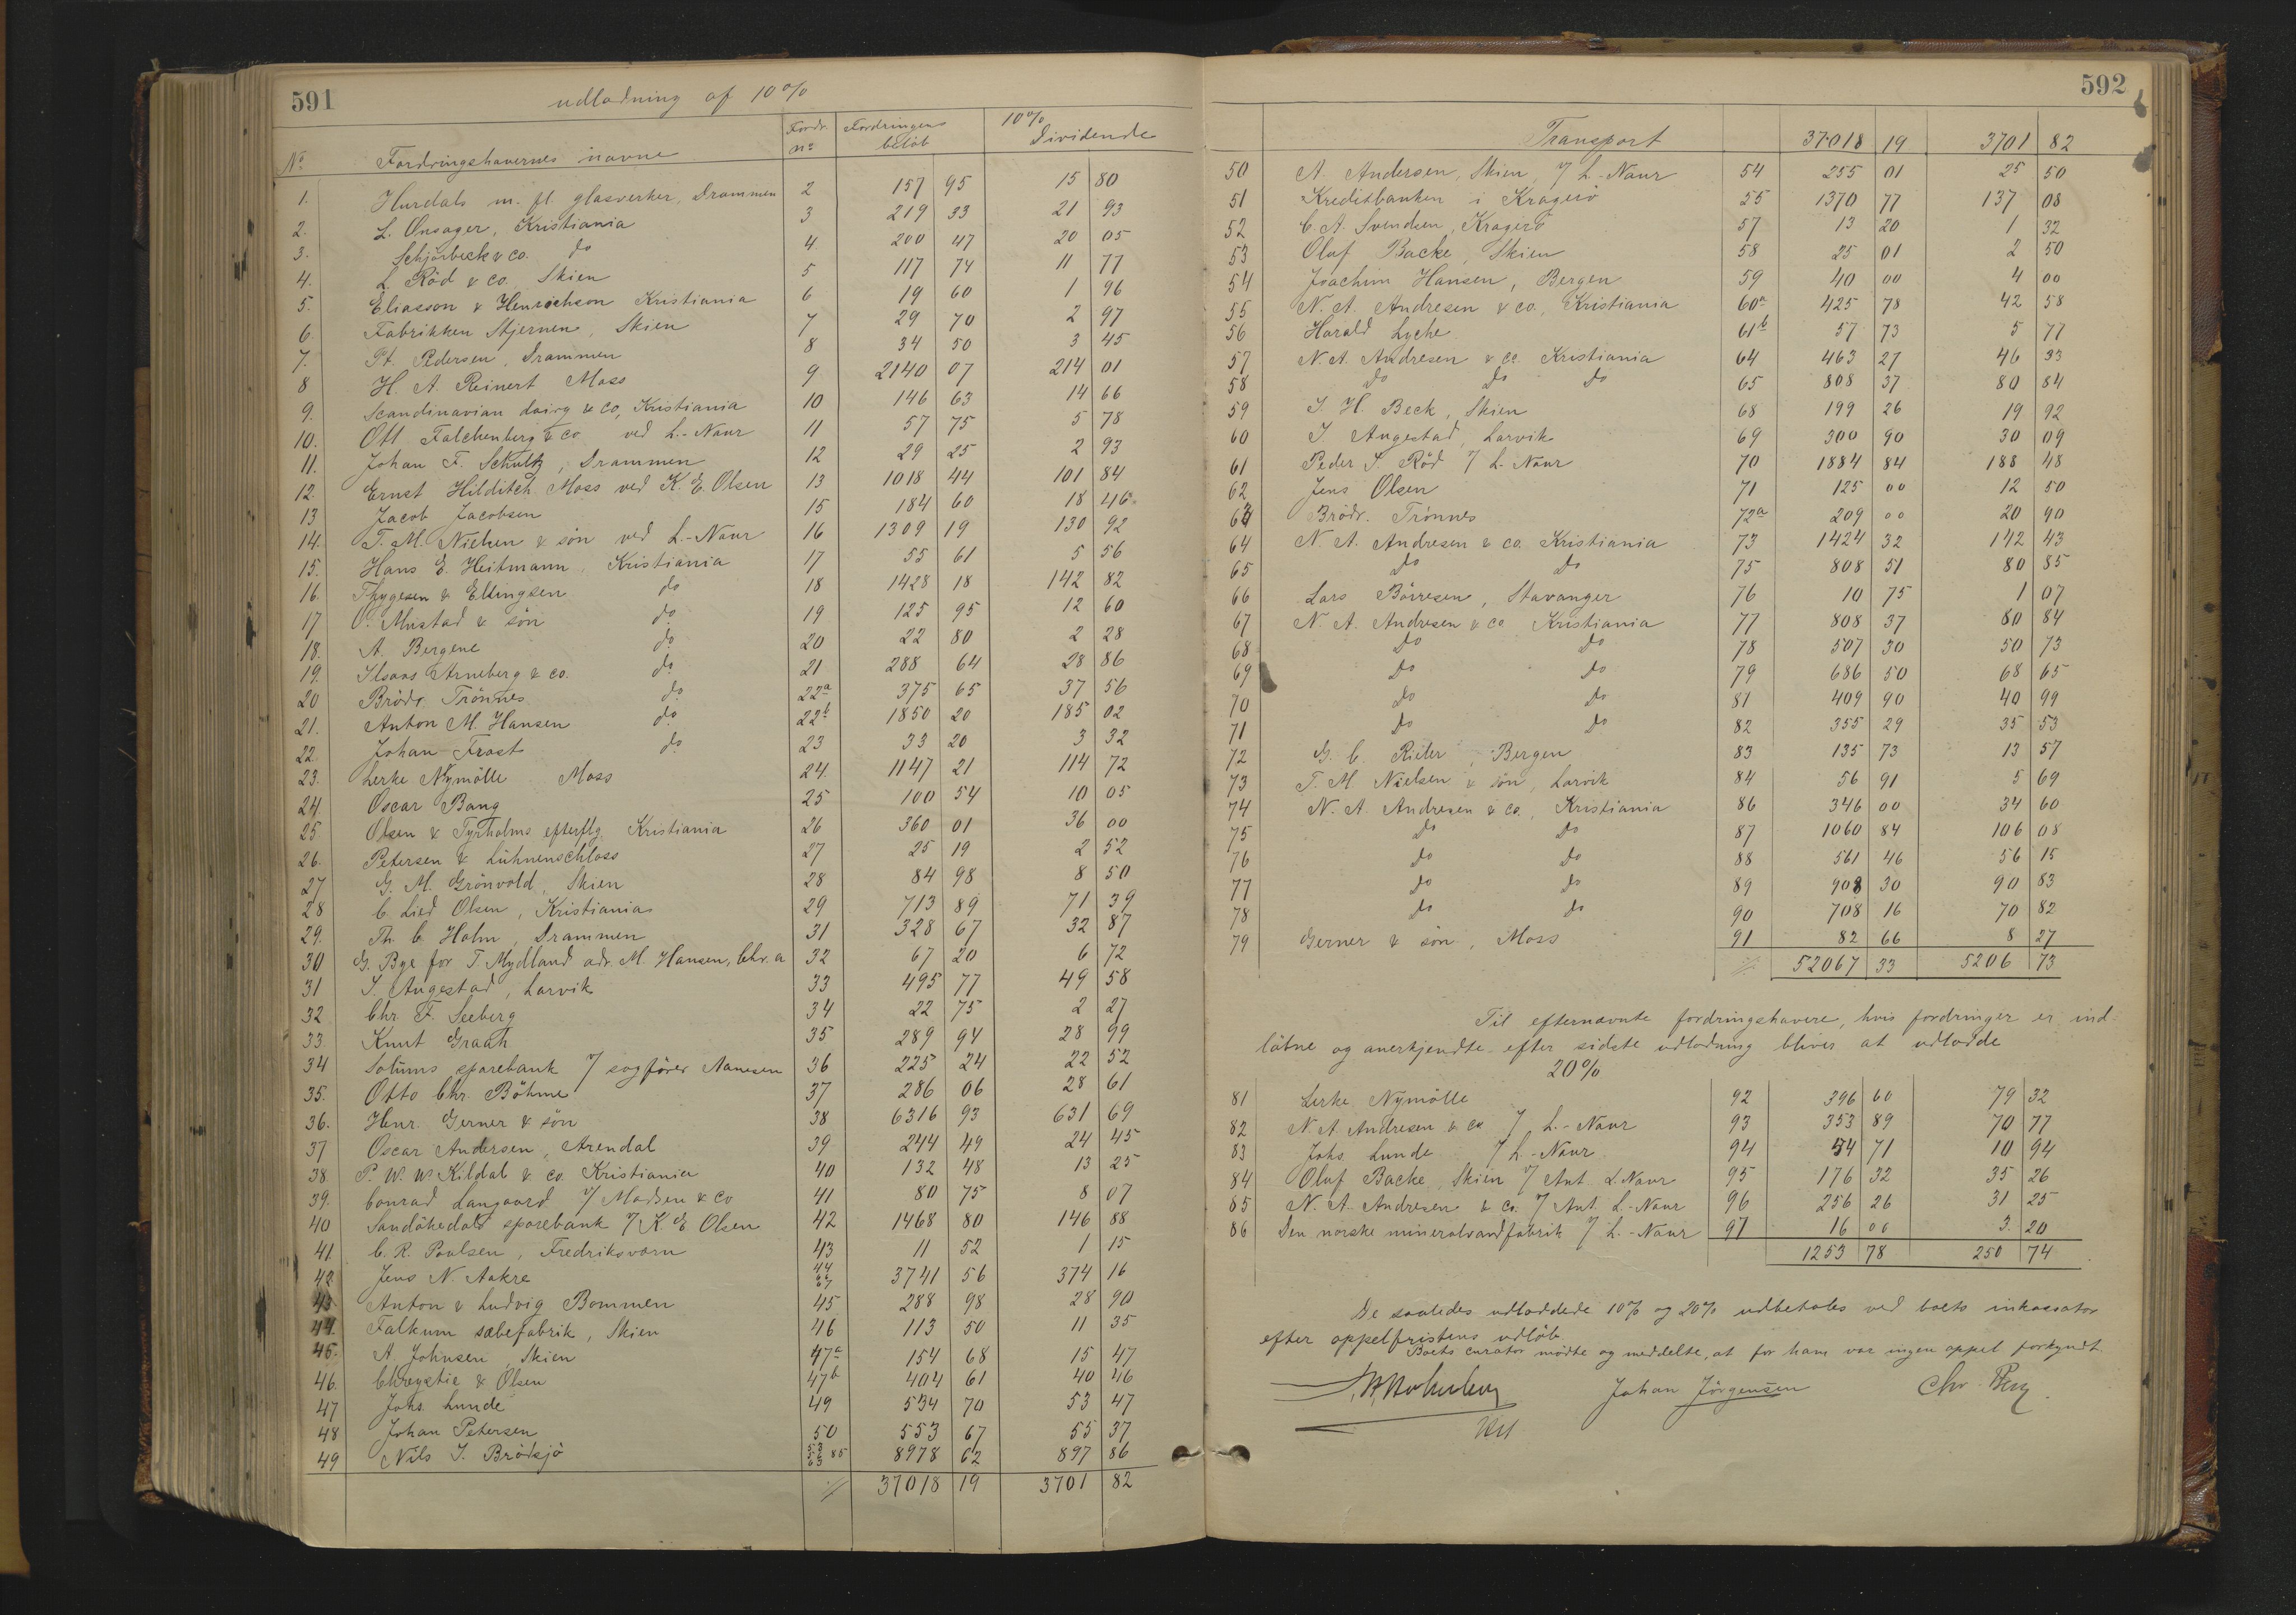 591
udlodning af 10%
No Fordringshavernes navne Fordr. no Fordringens beløb 10% Dividende
1. Hurdals m. fl. glasverker, Drammen 2 157 95 15 80
2. L. Onsager, Kristiania 3 219 33 21 93
3. Schjörbeck & co. do 4 200 47 20 05
4. L. Röd & co. Skien 5 117 74 11 77
5. Eliasson & Henrichson Kristiania 6 19 60 1 96
6. Fabrikken Stjernen, Skien 7 29 70 2 97
7. Pt. Pedersen, Drammen 8 34 50 3 45
8 H. A. Reinert Moss 9 2140 07 214 01
9. Scandinavian dairy & co, Kristiania 10 146 63 14 66
10. Ott. Falchenberg & co ved L.-Naur 11 57 75 5 78
11. Johan F. Schultz, Drammen 12 29 25 2 93
12. Ernst Hilditch Moss ved K. E. Olsen 13 1018 44 101 84
13 Jacob Jacobsen 15 184 60 18 46
14. T. M. Nielsen & sön ved L.-Naur 16 1309 19 130 92
15. Hans E. Heitmann, Kristiania 17 55 61 5 56
16. Thygesen & Ellingsen do 18 1428 18 142 82
17 O. Mustad & sön do 19 125 95 12 60
18. A. Bergene do 20 22 80 2 28
19. Ilsaas Arneberg & co. do 21 288 64 28 86
20 Brödr. Trönnes do 22a 375 65 37 56
21. Anton M. Hansen do 22b 1850 20 185 02
22. Johan Frost do 23 33 20 3 32
23. Lerke Nymölle Moss 24. 1147 21 114 72
24. Oscar Bang 25 100 54 10 05
25. Olsen & Tyrholms efterflg. Kristiania 26 360 01 36 00
26. Petersen & Lühnenschloss 27 25 19 2 52
27 G. M. Grönvold, Skien 28 84 98 8 50
28 C. Lied Olsen, Kristiania 29 713 89 71 39
29. Th. C. Holm, Drammen 31 328 67 32 87
30 G. Bye for T. Mydland adr. M. Hansen, Chr.a 32 67 20 6 72
31 I. Angestad, Larvik 33 495 77 49 58
32 Chr. F. Seeberg 34 22 75 2 27
33. Knut Graah 35 289 94 28 99
34 Solums sparebank 7 sagförer Aanesen 36 225 24 22 52
35. Otto Chr. Böhme 37 286 06 28 61
36. Henr. Gerner & sön 38 6316 93 631 69
37 Oscar Andersen, Arendal 39 244 49 24 45
38 P. W. W. Kildal & co. Kristiania 40 132 48 13 25
39. Conrad Langaard 7 Madsen & co 41 80 75 8 07
40 Sandökedals sparebank 7 K. E. Olsen 42 1468 80 146 88
41. C. R. Poulsen, Fredriksværn 43 11 52 1 15
42 Jens N. Aakre 44 66 67 3741 56 374 16
43 Anton & Ludvig Bommen 45 288 98 28 90
44. Falkum sæbefabrik, Skien 46 113 50 11 35
45. A. Johnsen, Skien 47a 154 68 15 47
46. Chrystie & Olsen 47b 404 61 40 46
47 Johs. Lunde 49 534 70 53 47
48 Johan Petersen 50 553 67 55 37
49 Nils I. Brödsjö 53 56 63 85 8978 62 897 86
37018 19 3701 82
592
Transport 37018 19 3701 82
50 A. Andersen, Skien, 7 L.-Naur 54 255 01 25 50
51 Kreditbanken i Kragerö 55 1370 77 137 08
52 C. A. Svendsen, Kragerö 57 13 20 1 32
53 Oluf Backe, Skien 58 25 01 2 50
54 Joachim Hansen, Bergen 59 40 00 4 00
55 N. A. Andresen & co., Kristiania 60a 425 78 42 58
56 Harald Lyche 61b 57 73 5 77
57 N. A. Andresen & co. Kristiania 64 463 27 46 33
58 do do do 65 808 37 80 84
59 I. H. Beck, Skien 68 199 26 19 92
60 I. Angestad, Larvik 69 300 90 30 09
61 Peder S. Röd 7 L.-Naur 70 1884 84 188 48
62 Jens Olsen 71 125 00 12 50
63 Brödr. Trönnes 72a 209 00 20 90
64 N. A. Andresen & co. Kristiania 73 1424 32 142 43
65 do do 75 808 51 80 85
66 Lars Börresen, Stavanger 76 10 75 1 07
67 N. A. Andresen & co Kristiania 77 808 37 80 84
68 do do 78 507 30 50 73
69 do do 79 686 50 68 65
70 do do 81 409 90 40 99
71 do do 82 355 29 35 53
72 G. C. Rieber, Bergen 83 135 73 13 57
73 T. M. Nielsen & sön, Larvik 84 56 91 5 69
74 N. A. Andresen & co., Kristiania 86 346 00 34 60
75 do do 87 1060 84 106 08
76 do do 88 561 46 56 15
77 do do 89 908 30 90 83
78 do do 90 708 16 70 82
79 Gerner & sön, Moss 91 82 66 8 27
52067 33 5206 73
Til efternævnte fordringshavere, hvis fordringer er ind-
låtne og anerkjendte efter sidste udlodning bliver at udlodde
20%
81 Lerke Nymölle 92 396 60 79 32
82 N. A. Andresen & co 7 L.-Naur 93 353 89 70 77
83 Johs. Lunde 7 L.-Naur 94 54 71 10 94
84 Oluf Backe, Skien 7 Ant. L.Naur 95 176 32 35 26
85 N. A. Andresen & co. 7 Ant. L.-Naur 96 256 26 31 25
86 Den norske mineralvandfabrik 7 L.-Naur 97 16 00 3. 20
1253 78 250 74
De saaledes udloddede 10% og 20% udbetales ved boets inkassator
efter appelfristens udløb.
Boets curator mödte og meddelte, at for ham var ingen appel forkyndt.
Johan Jörgensen Chr.